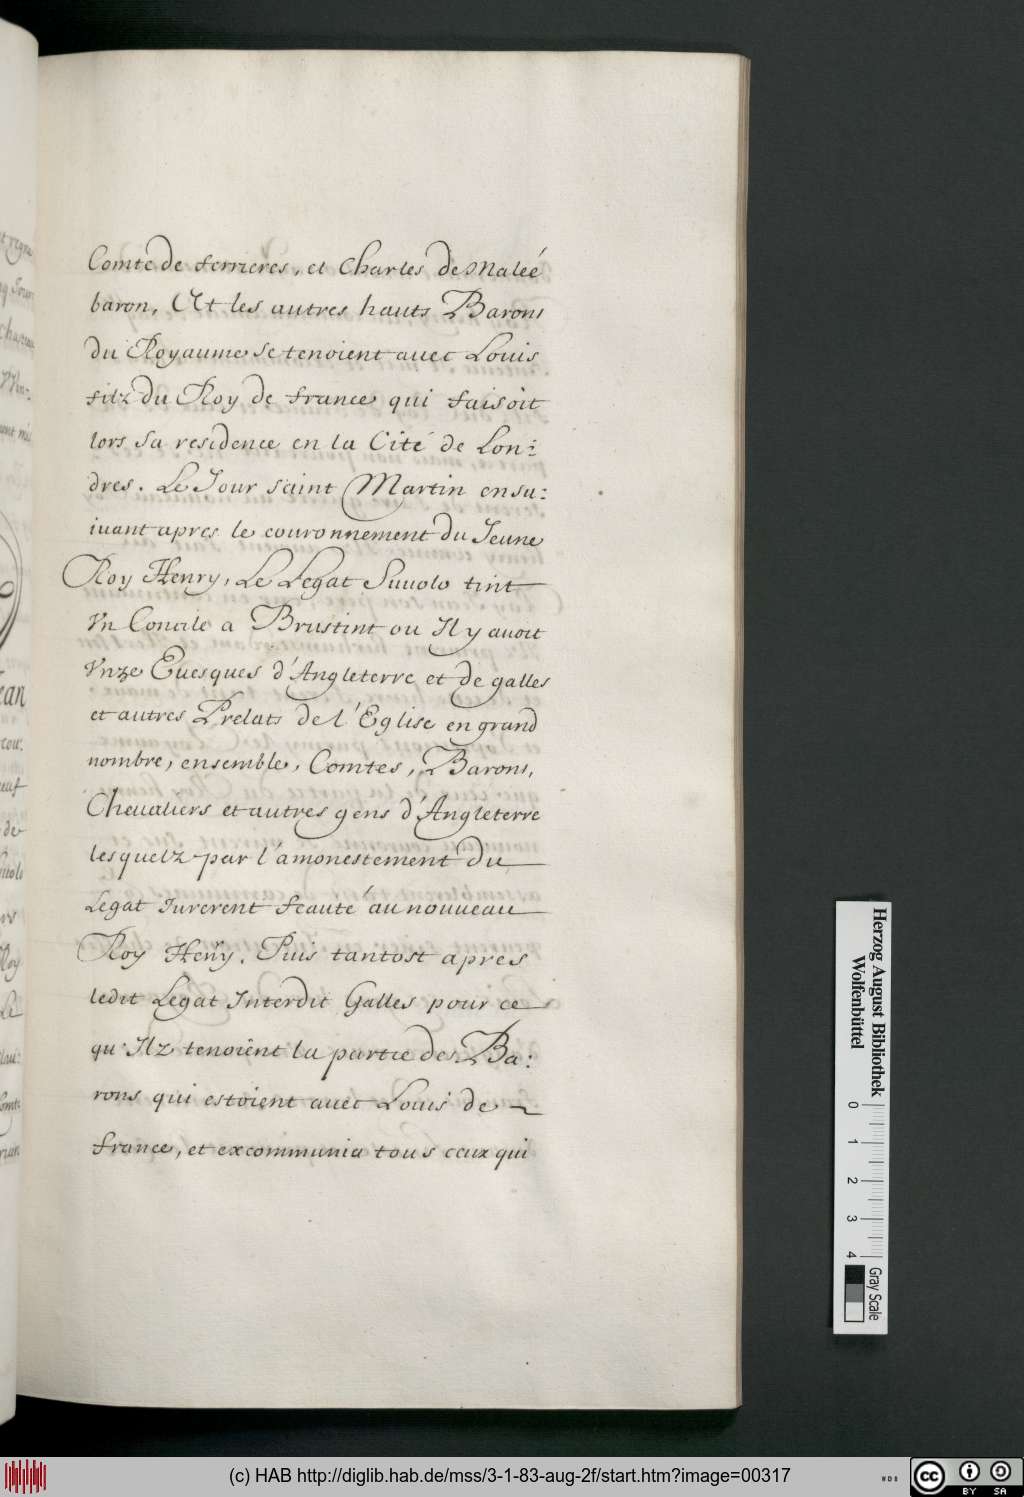 Comte de ferrieres, et Charles de Maleé
baron, Et les autres hauts Barons
du Royaume se tenoient avec Louis
filz du Roy de france qui faisoit
lors sa residence en la Cité de Lon:
dres. Le Jour saint Martin ensu:
ivant apres le couronnement du Jeune
Roy Henry, Le Legat Suuolo tint
Vn Concile a Brustint ou Il y avoit
Vnze Evesques d'Angleterre et de galles
et autres Prelats de l'Eglise en grand
nombre, ensemble, Comtes, Barons,
Chevaliers et autres gens d'Angleterre
lesquelz par l'amonestement du
Legat Jurerent feauté au nouveau
Roy Heñry. Puis tantost apres
ledit Legat Interdit Galles pour ce
qu'Ilz tenoient la partie des Ba:
rons qui estoient avec Louis de
france, et excommunia tous ceux qui
Herzog August Bibliothek
Wolfenbüttel
0 1 2 3 4
Gray Scale
(c) HAB http://diglib.hab.de/mss/3-1-83-aug-2f/start.htm?image=00317
WDB
cc BY SA